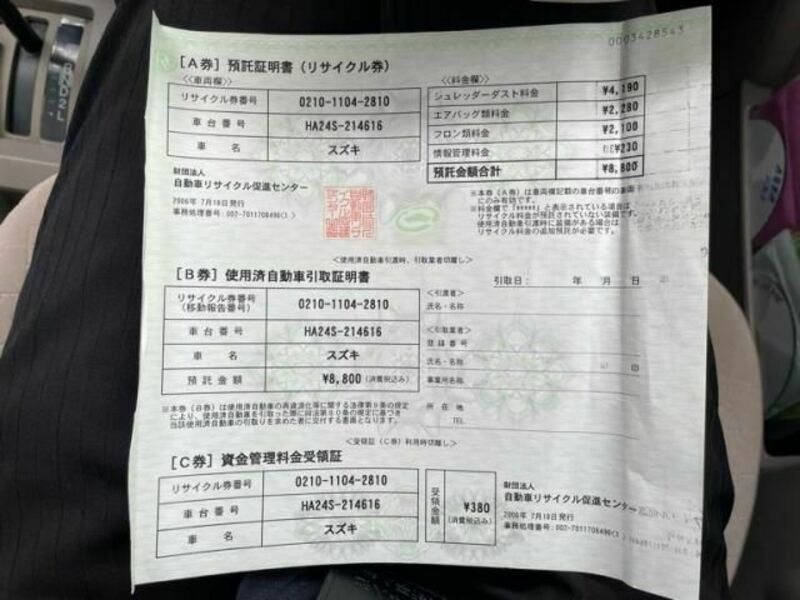 0003428543
[A券] 預託証明書(リサイクル券)
<<車両欄>>
リサイクル券番号 0210-1104-2810
車台番号 HA24S-214616
車名 スズキ
<<料金欄>>
シュレッダーダスト料金 ¥4,190
エアバッグ類料金 ¥2,280
フロン類料金 ¥2,100
情報管理料金 ¥230
預託金額合計 ¥8,800
財団法人
自動車リサイクル促進センター
2006年 7月18日発行
※本券(A券)は車両欄記載の車台番号の車両
にのみ有効です。
※料金欄で「*****」と表示されている項目は
リサイクル料金が預託されていない装備です。
使用済自動車引渡時に装備がある場合は
リサイクル料金の追加預託が必要です。
<使用済自動車引渡時、引取業者切離し>
[B券] 使用済自動車引取証明書
引取日: 年 月 日
リサイクル券番号
(移動報告番号) 0210-1104-2810
車台番号 HA24S-214616
車名 スズキ
預託金額 ¥8,800 (消費税込み)
<引渡者>
氏名・名称
<引取業者>
登録番号
氏名・名称 印
事業所名称
所在地
TEL
※本券(B券)は使用済自動車の再資源化等に関する法律第9条の規定
により、使用済自動車を引取った際に同法第80条の規定に基づき
当該使用済自動車の引取りを求めた者に交付する書面となります。
<受領証(C券)利用時切離し>
[C券] 資金管理料金受領証
リサイクル券番号 0210-1104-2810
車台番号 HA24S-214616
車名 スズキ
受領金額 ¥380
(消費税込み)
財団法人
自動車リサイクル促進センター
2006年 7月18日発行